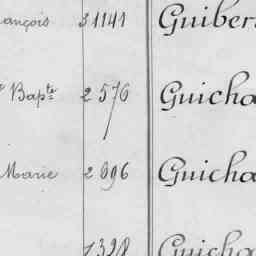 ançois 31141 Guiber
Bapte 2576 Guicha
Marie 2696 Guicha
1328 Guicha